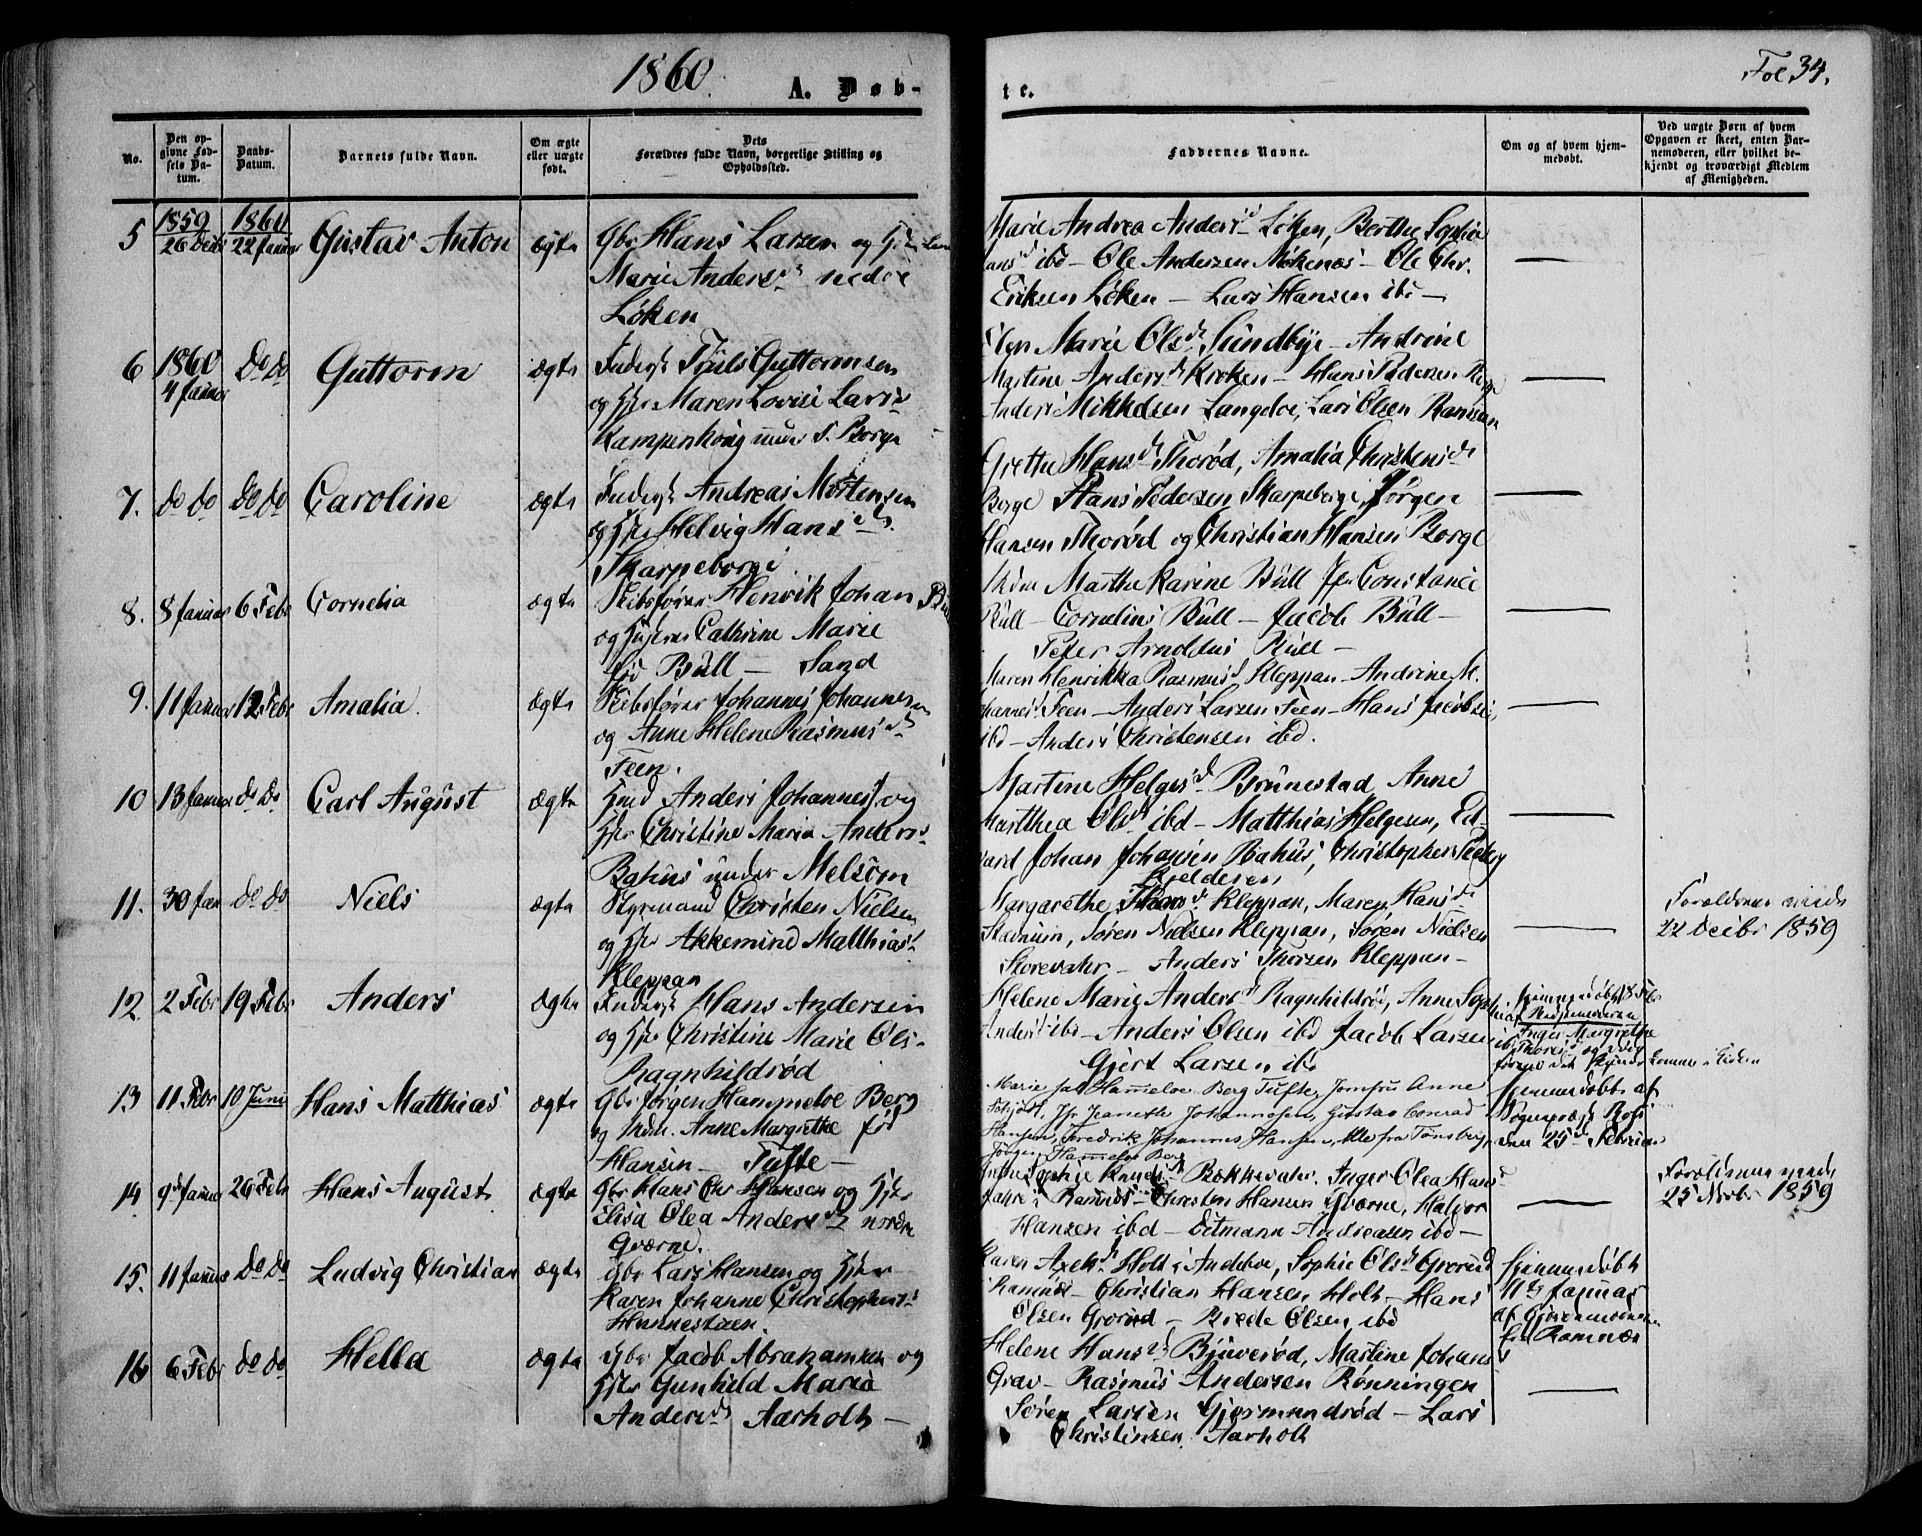 1860.
A. Døb-
te.
Fol 34.
No.
Den opgivne Fødsels Datum.
Daabs-Datum.
Barnets fulde Navn.
Om ægte eller uægte født.
Dets Forældres fulde Navn, borgerlige Stilling og Opholdssted.
Faddernes Navne.
Om og af hvem hjemmedøbt.
Ved uægte Børn af hvem Opgaven er skeet, enten Barnemoderen, eller hvilket bekjendt og troværdigt Medlem af Menigheden.
5 1859 26 Decbr 1860 22 Januar Gustav Anton ægte Gbr Hans Larsen og Hstr
Marie Andersd nedre
Løken
Marie Andrea Andersd Løken, Berthe Sophie
Hansd ibd - Ole Andersen Møkenæs - Ole Chr.
Eriksen Løken - Lars Hansen ibd -
6 1860 4 Januar Do Do Guttorm ægte Inderst Truls Guttormsen
og Hstr Maren Lovise Larsd
Kampenhoug under S. Borge
Marie Olsd Sundbye - Andrine
Martine Andersd Kroken - Hans Pedersen
Anders Mikkelsen Langløe, Lars Olsen Ramsan
7. do do do do Caroline ægte Inderst Andreas Mortensen
og Hstr Helvig Hansd
Skarpeborge.
Grethe Hansd Thorød, Amalia Christensd
Berge Hans Pedersen Skarpeborge, Jørgen
Hansen Thorød og Christian Hansen Borge
8. 8 Januar 6 Febr Cornelia ægte Skibsfører Henrik Johan Bull
og Hustru Cathrine Marie
fød Bull - Sand
Mdm Marthe Karine Bull Jfr Constance
Bull - Cornelius Bull - Jacob Bull -
Peter Arnoldus Bull -
9. 11 Januar 12 Febr Amalia. ægte Skibsfører Johannes Johannesen
og Anne Helene Rasmusd
Feen.
Maren Henrikka Rasmusd Kleppan - Andrine M.
Johannesd Feen - Anders Larsen Feen - Hans Jacobsen
ibd - Anders Christensen ibd.
10 13 Januar do do Carl August ægte Hmd Anders Johannes. og
Hstr Christine Maria Andersd
Bahus under Melsom
Martine Helgesd Brunestad Anne
Marthea Olsd ibd - Matthias Helgesen, Ed-
vard Johan Johansen Bahus, Christopher
Kjelderen
11. 30 Jan do do Niels ægte Styrmand Christen Nielsen
og Hstr Akkemine Matthiasd
Kleppan
Margarethe Kleppan, Maren Hansd
Søren Nielsen Kleppan, Søren Nielsen
Storevahr - Anders Thorsen Kleppan -
Forældrene viede
22 Decbr 1859
12. 2 Febr 19 Febr Anders ægte Inderst Hans Andersen
og Hstr Christine Marie Ols-
Ragnhildrød
Helene Marie Andersd Ragnhildrød, Anne Sophie
Andersd ibd - Anders Olsen ibd Jacob Larsen
ibd Gjert Larsen ibd
Hjemmedøbt 8 Febr
af
Inger Margrethe
13 11 Febr 10 Juni Hans Matthias ægte Gbr Jørgen Hammeløe Berg
og Mdm. Anne Margrethe fød
Hansen - Tufte -
Marie Hammeloe Berg Tufte, Jomfru Anne
Jfr Jeanette Johannesen, Gustav Conrad
Hansen, Fredrik Johannes Hansen, Alle fra Tønsberg
Jørgen Hammeloe Berg
Hjemmedøbt af
Sognepræst
den 25de Februar
14. 9de Januar 26 Febr Hans August ægte Gbr Hans Chr Hansen og Hstr
Elisa Olea Andersd nordre
Gværne.
Sophie Knudsd Bøkkevahr. Inger Olea Hansd
Ramnæs - Christen Hansen Gværne, Halvor
Hansen ibd - Ditmann Andreasen ibd -
Forældrene viede
25 Novbr 1859
15. 11 Januar Do Do Ludvig Christian ægte Gbr Lars Hansen og Hstr
Karen Johanne Christophersd
Hunnestaen.
Karen Axelsd Holt i Andeboe, Sophie Olsd Grorud
Ramnæs - Christian Hansen Holt - Hans
Olsen Grorud - Brede Olsen ibd
Hjemmedøbt
11te Januar
af Gjordemoderen
fra Ramnæs
16 6 Febr do do Hella ægte Gbr Jacob Abrahamsen og
Hstr Gunhild Maria
Andersd Aarholt -
Helene Hansd Bjuerød, Martine Johansd
Grav - Rasmus Andersen Rønningen
Søren Larsen Gjermundrød - Lars
Christensen Aarholt